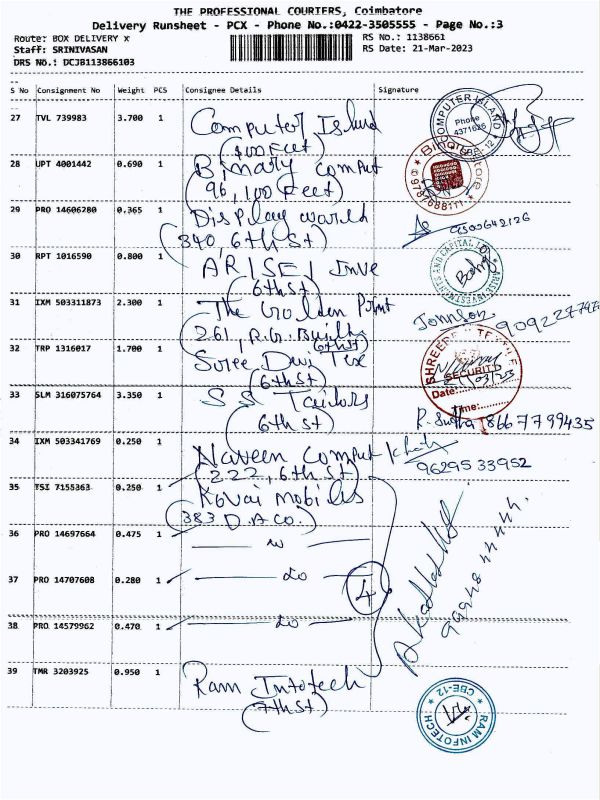 THE PROFESSIONAL COURIERS, Coimbatore
Delivery Runsheet - PCX - Phone No.:0422-3505555 - Page No.:3
Route: BOX DELIVERY x
RS No.: 1138661
Staff: SRINIVASAN
RS Date: 21-Mar-2023
DRS No.: DCJB113866103
S No Consignment No Weight PCS Consignee Details Signature
27 TVL 739983 3.700 1 Computer Island
(100 Feet)
COMPUTER ISLAND
Phone
4371626
28 UPT 4001442 0.690 1 Binary Comput
(96, 100 Feet)
29 PRO 14606280 0.365 1 Display world
9500642126
(340, 6th St)
30 RPT 1016590 0.800 1 ARISE / Inve
(6th St)
31 IXM 503311873 2.300 1 The Golden Point
Johnson
261, R.G.
(6th St)
32 TRP 1316017 1.700 1 Sree Devi Tex
(6th St)
SECURITY
Date:
Time:
33 SLM 316075764 3.350 1 S S Tailors
(6th St)
8667799435
34 IXM 503341769 0.250 1 Naveen Comput
(222, 6th St)
9629533952
35 TSI 7155363 0.250 1 Kovai Mobiles
(383 D.A.CO.)
36 PRO 14697664 0.475 1
37 PRO 14707608 0.280 1 do
4
38 PRO 14579962 0.470 1 do
39 TMR 3203925 0.950 1 Ram Infotech
(7th St)
CBE-12
RAM INFOTECH